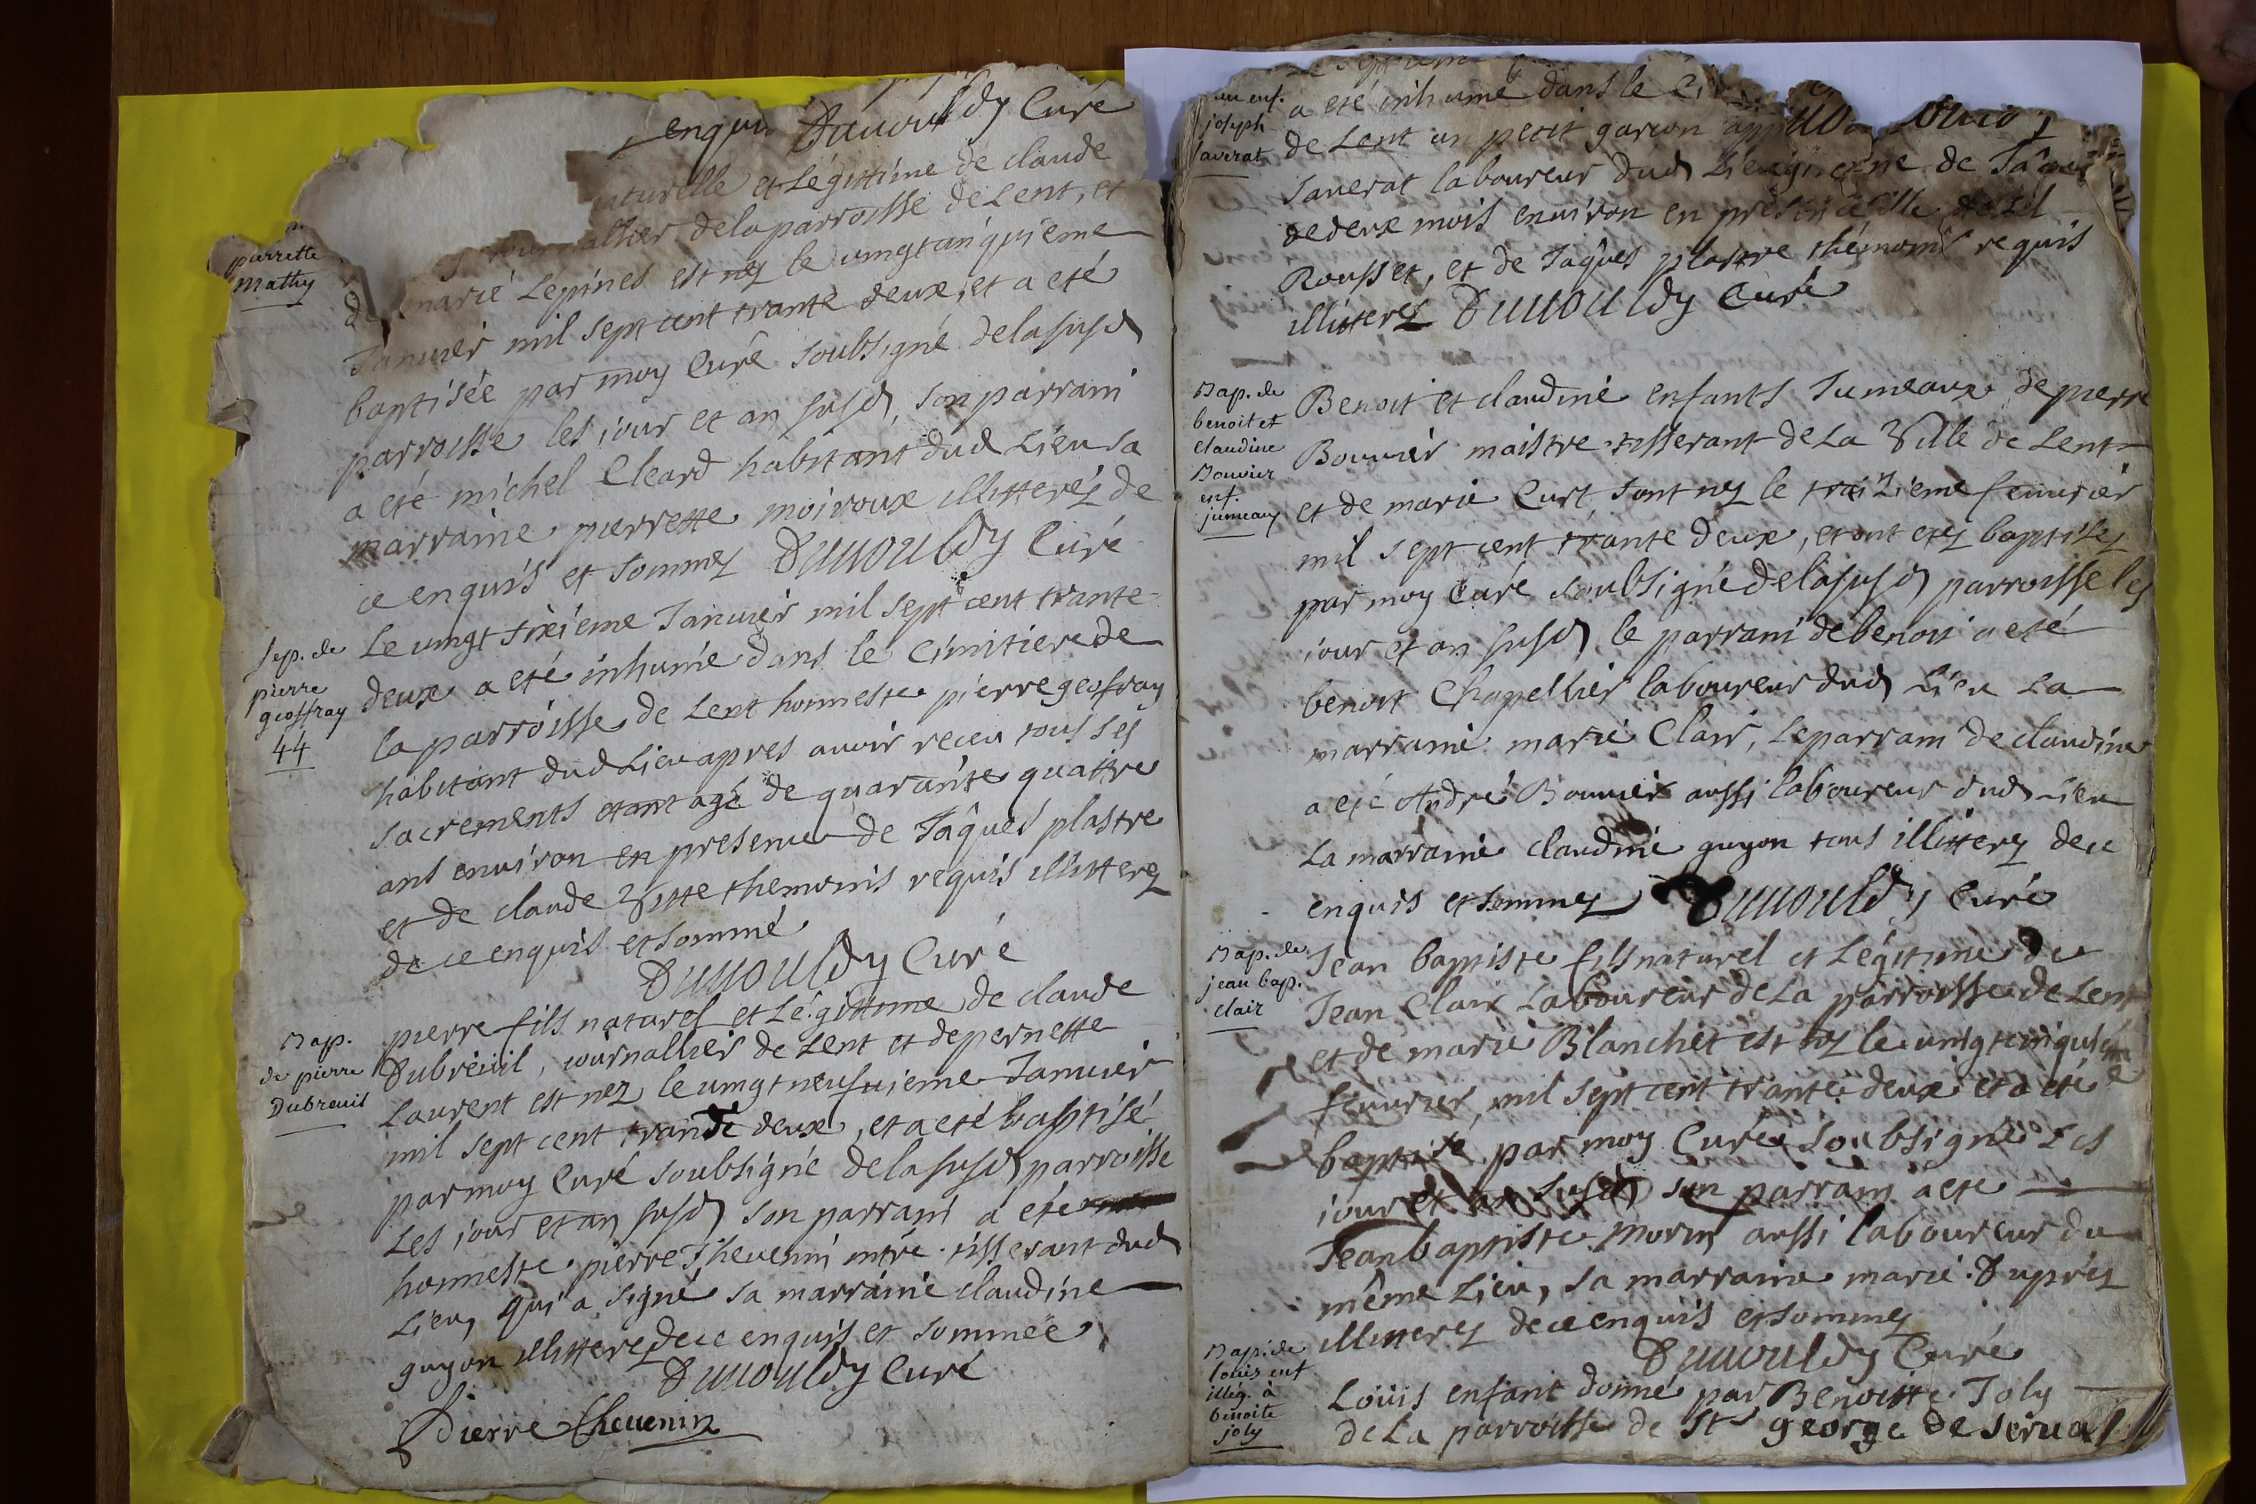 enquis Duuouldy Curé
naturelle et Légittime de claude
de la parroisse de Lent, et
pierrette
mathy
de marie Lépines est néz le vingtcinquieme
Januier mil sept cent trante deux, et a eté
baptisée par moy Curé soubsigné de la susd
parroisse les jour et an susd, son parrain
a eté michel Cleard habitant dud Lieu sa
marraine pierrette moiroux illitteréz de
ce enquis et sommez Duuouldy Curé
sep. de
pierre
geoffray
44
Le vingt sixieme Januier mil sept cent trante
deux a eté inhumé dans le Cimitiere de
la parroisse de Lent honneste pierre geoffray
habitant dud Lieu apres auoir receu tous ses
sacrements etant agé de quarante quattre
ans enuiron en presence de Jâques plastre
et de claude Vitte themoins requis illitterez
de ce enquis et sommé
Duuouldy Curé
Bap.
de pierre
Dubreuil
pierre fils naturel et Légittime de claude
Dubreüil, journallier de Lent et de pernette
Laurent est nez le vingt neufuieme Januier
mil sept cent trante deux, et a eté baptisé
par moy Curé soubsigné de la susd parroisse
Les jour et an susd son parrain a eté
honneste pierre Theuenin mtre tisserant dud
Lieu, qui a signé sa marraine claudine
guyon illitterez de ce enquis et sommée
Duuouldy Curé
Pierre Theuenin
un enf.
joseph
saverat
a eté inhumé dans le
de Lent un petit garcon
Sauerat laboureur dud Lieu de
de deux mois enuiron en
Rousset, et de Jâques plastre thémoins requis
illitterez Duuouldy Curé
Bap. de
benoit et
claudine
Bouvier
enf.
jumeaux
Benoit et claudine enfants Jumeaux de pierre
Bouuier maistre tisserant de La Ville de Lent
et de marie Curt, sont nez le treizieme feuurier
mil sept cent trante deux, et ont etez baptisez
par moy Curé soubsigné de la susd parroisse les
jour et an susd le parrain de benoit a eté
benoit Chapellier laboureur dud Lieu La
marraine marie Clair, Le parrain de claudine
a eté André Bouuier aussi laboureur dud Lieu
La marraine claudine guyon tous illitterez de ce
enquis et sommez Duuouldy Curé
Bap. de
jean bap.
clair
Jean baptiste fils naturel et Légitime de
Jean Clair Laboureur de La parroisse de Lent
et de marie Blanchet est nez le vingtcinquieme
feuurier mil sept cent trante deux et a eté
baptisé par moy Curé soubsigné Les
jour et an susd son parrain a eté
Jean baptiste morin aussi laboureur du
même Lieu, sa marraine marie Dupréz
illitterez de ce enquis et sommez
Duuouldy Curé
Bap. de
louis enf
illég. à
benoite
joly
Loüis enfant donné par Benoitte Joly
de La parroisse de St george de